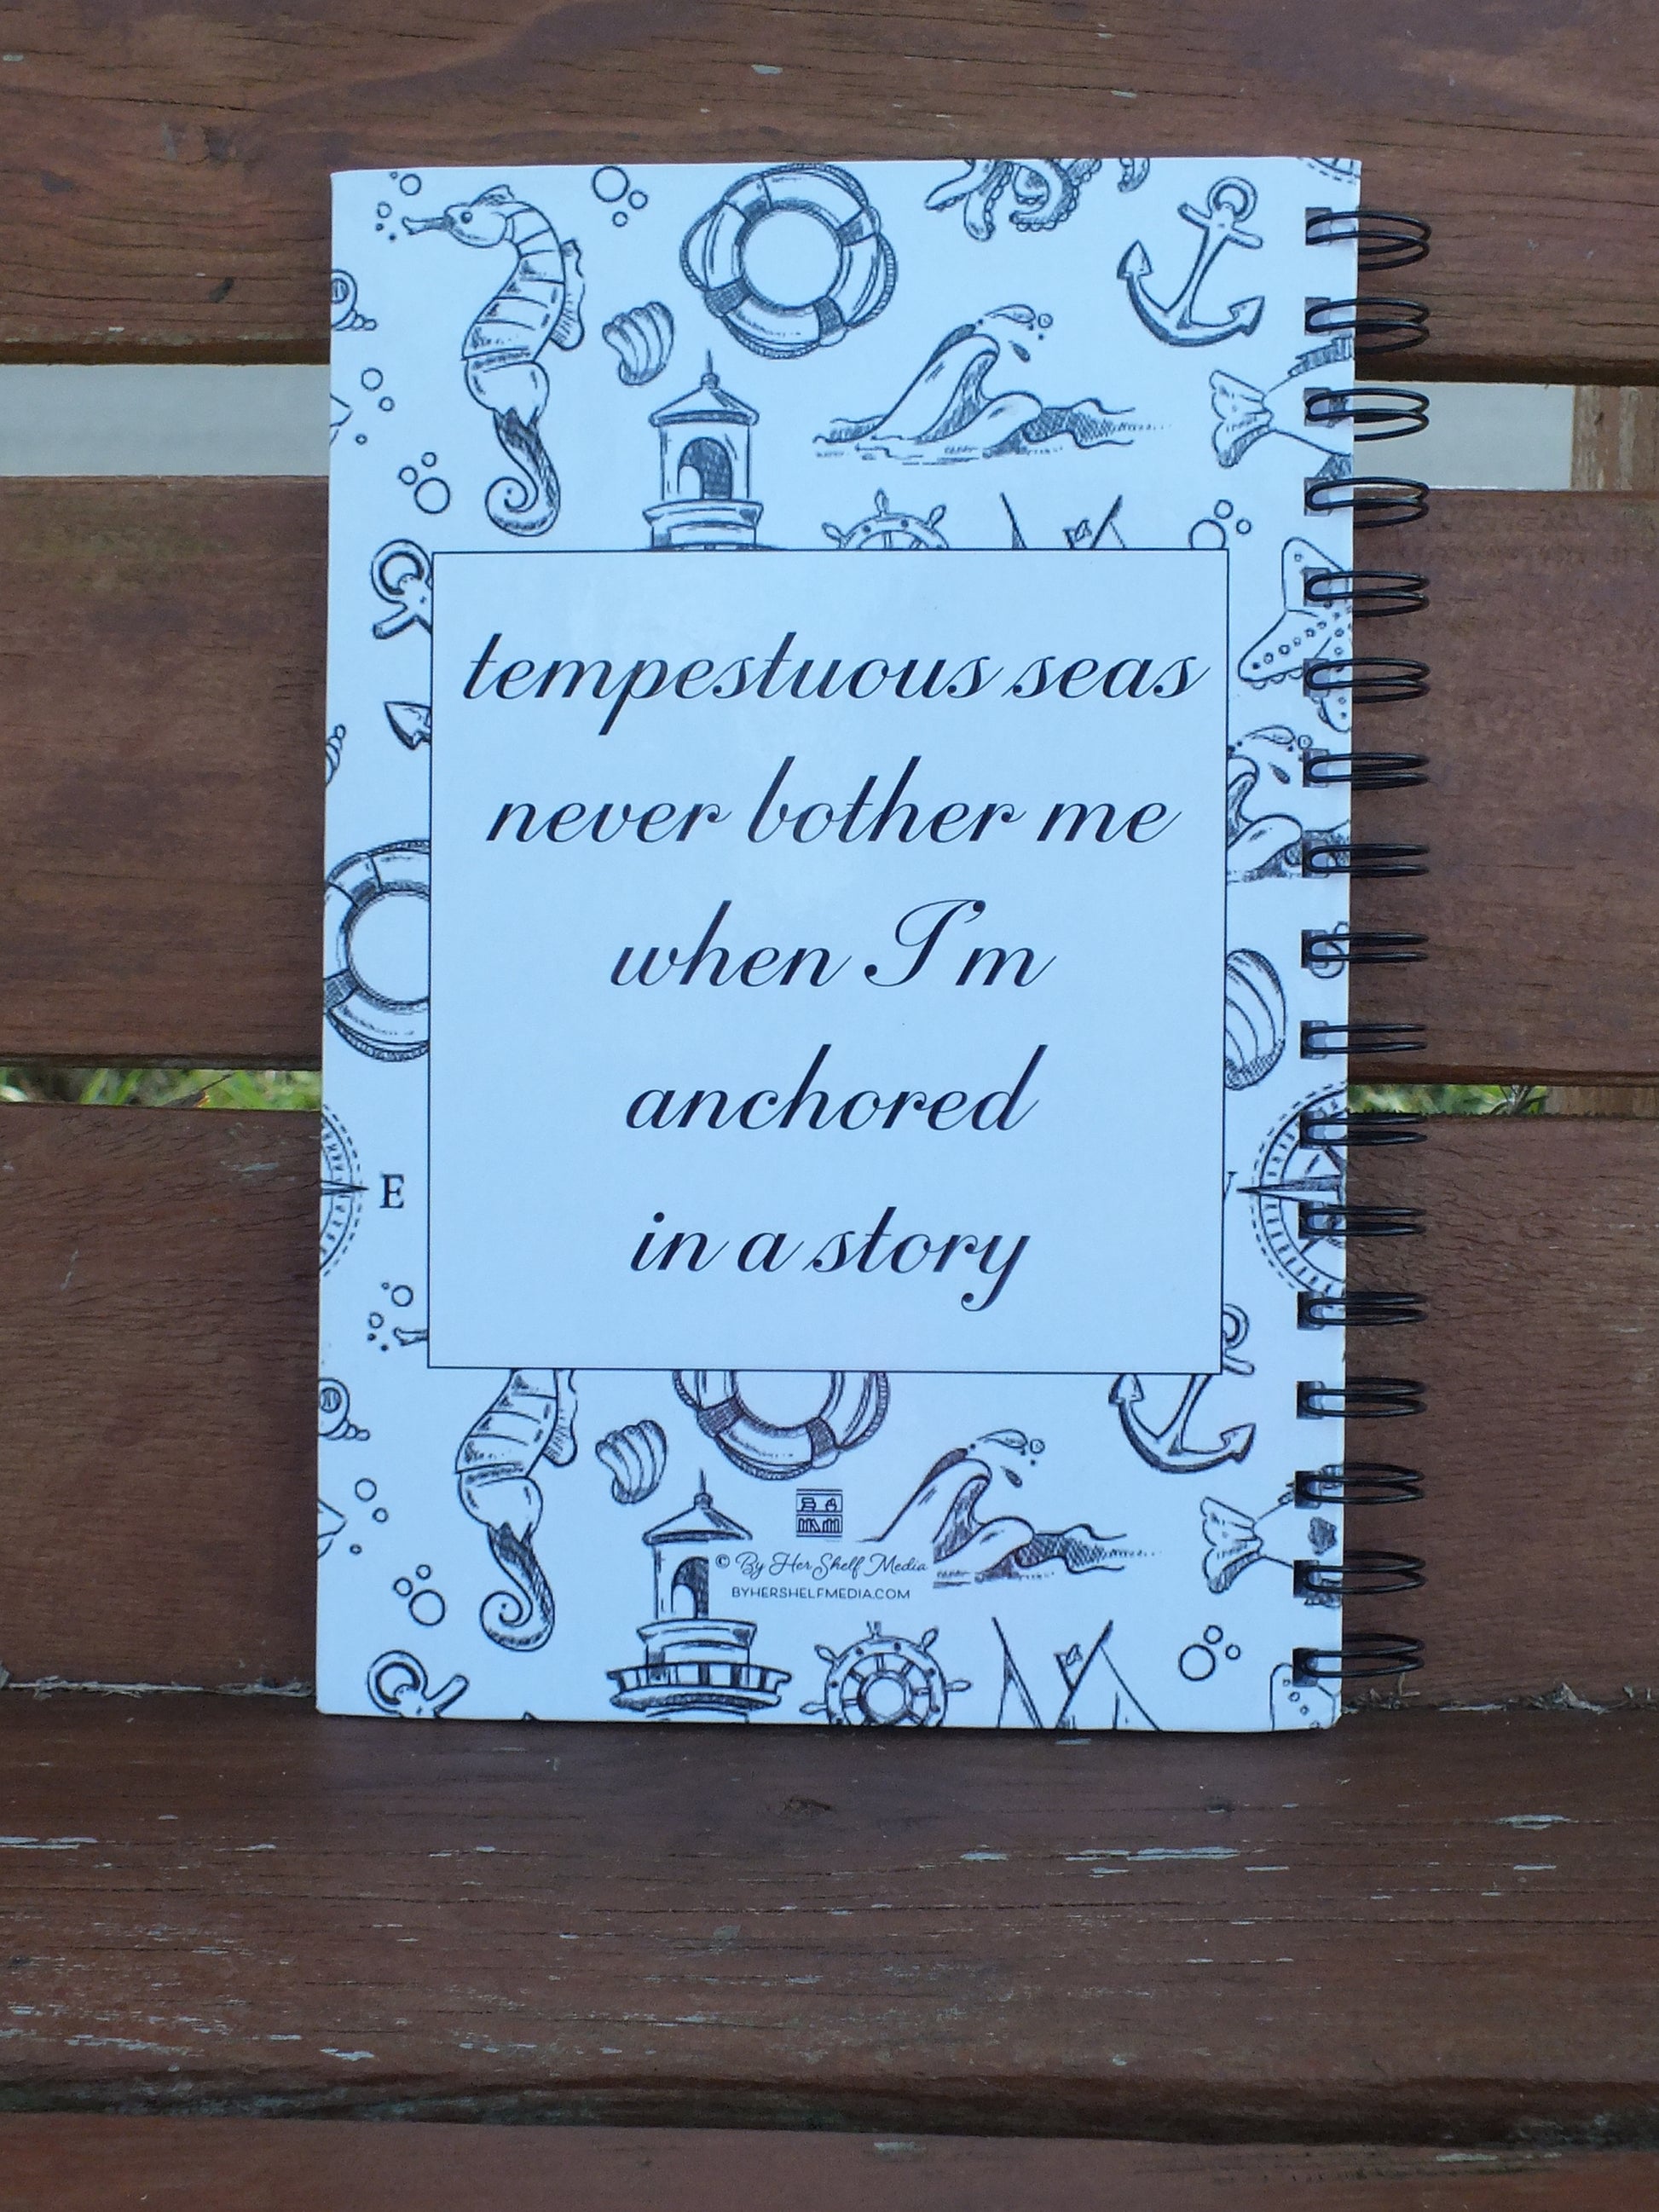 tempestuous seas
never bother me
when I'm
anchored
in a story
E
© By Her Shelf Media
BYHERSHELFMEDIA.COM